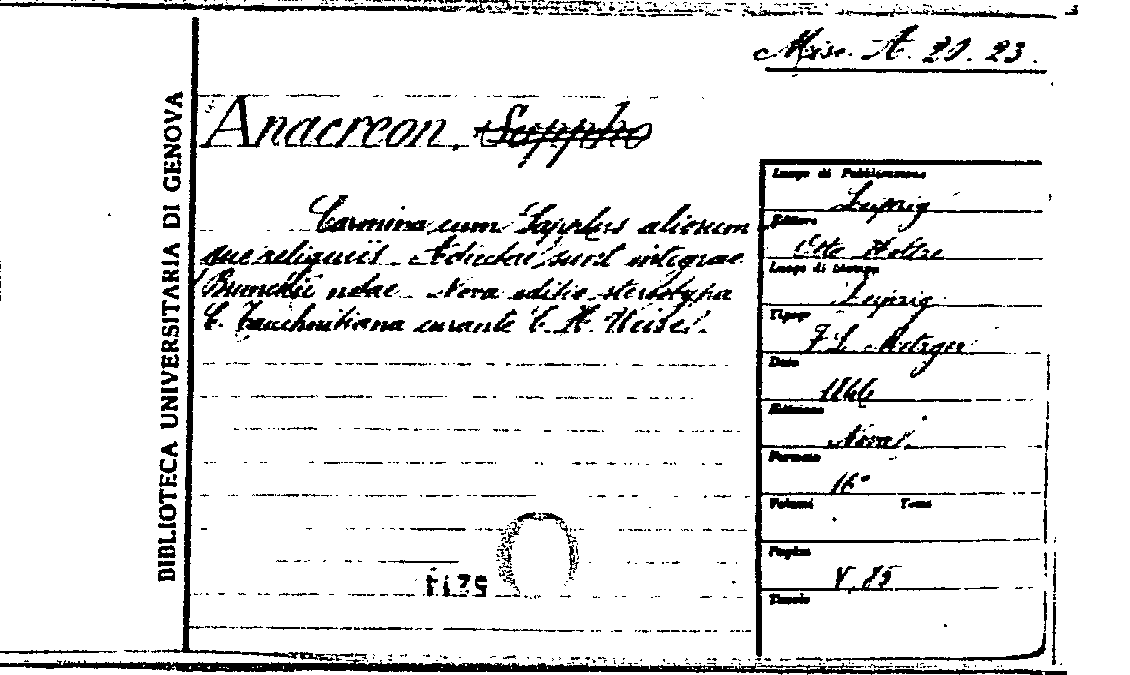 Misc. A. 20. 23.
BIBLIOTECA UNIVERSITARIA DI GENOVA
Anacreon, Sappho
Carmina cum Sapphus aliorum
que reliquiis. Adiectae sunt integrae
Brunckii notae. Nova editio stereotypa
C. Tauchnitiana curante C. H. Weise.
Luogo di Pubblicazione
Leipzig
Editore
Otto Holtze
Luogo di stampa
Leipzig
Tipogr.
F. L. Metzger
Data
1866
Edizione
Nova
Formato
16°
Volumi Tomo
Pagine
V, 85
Tavole